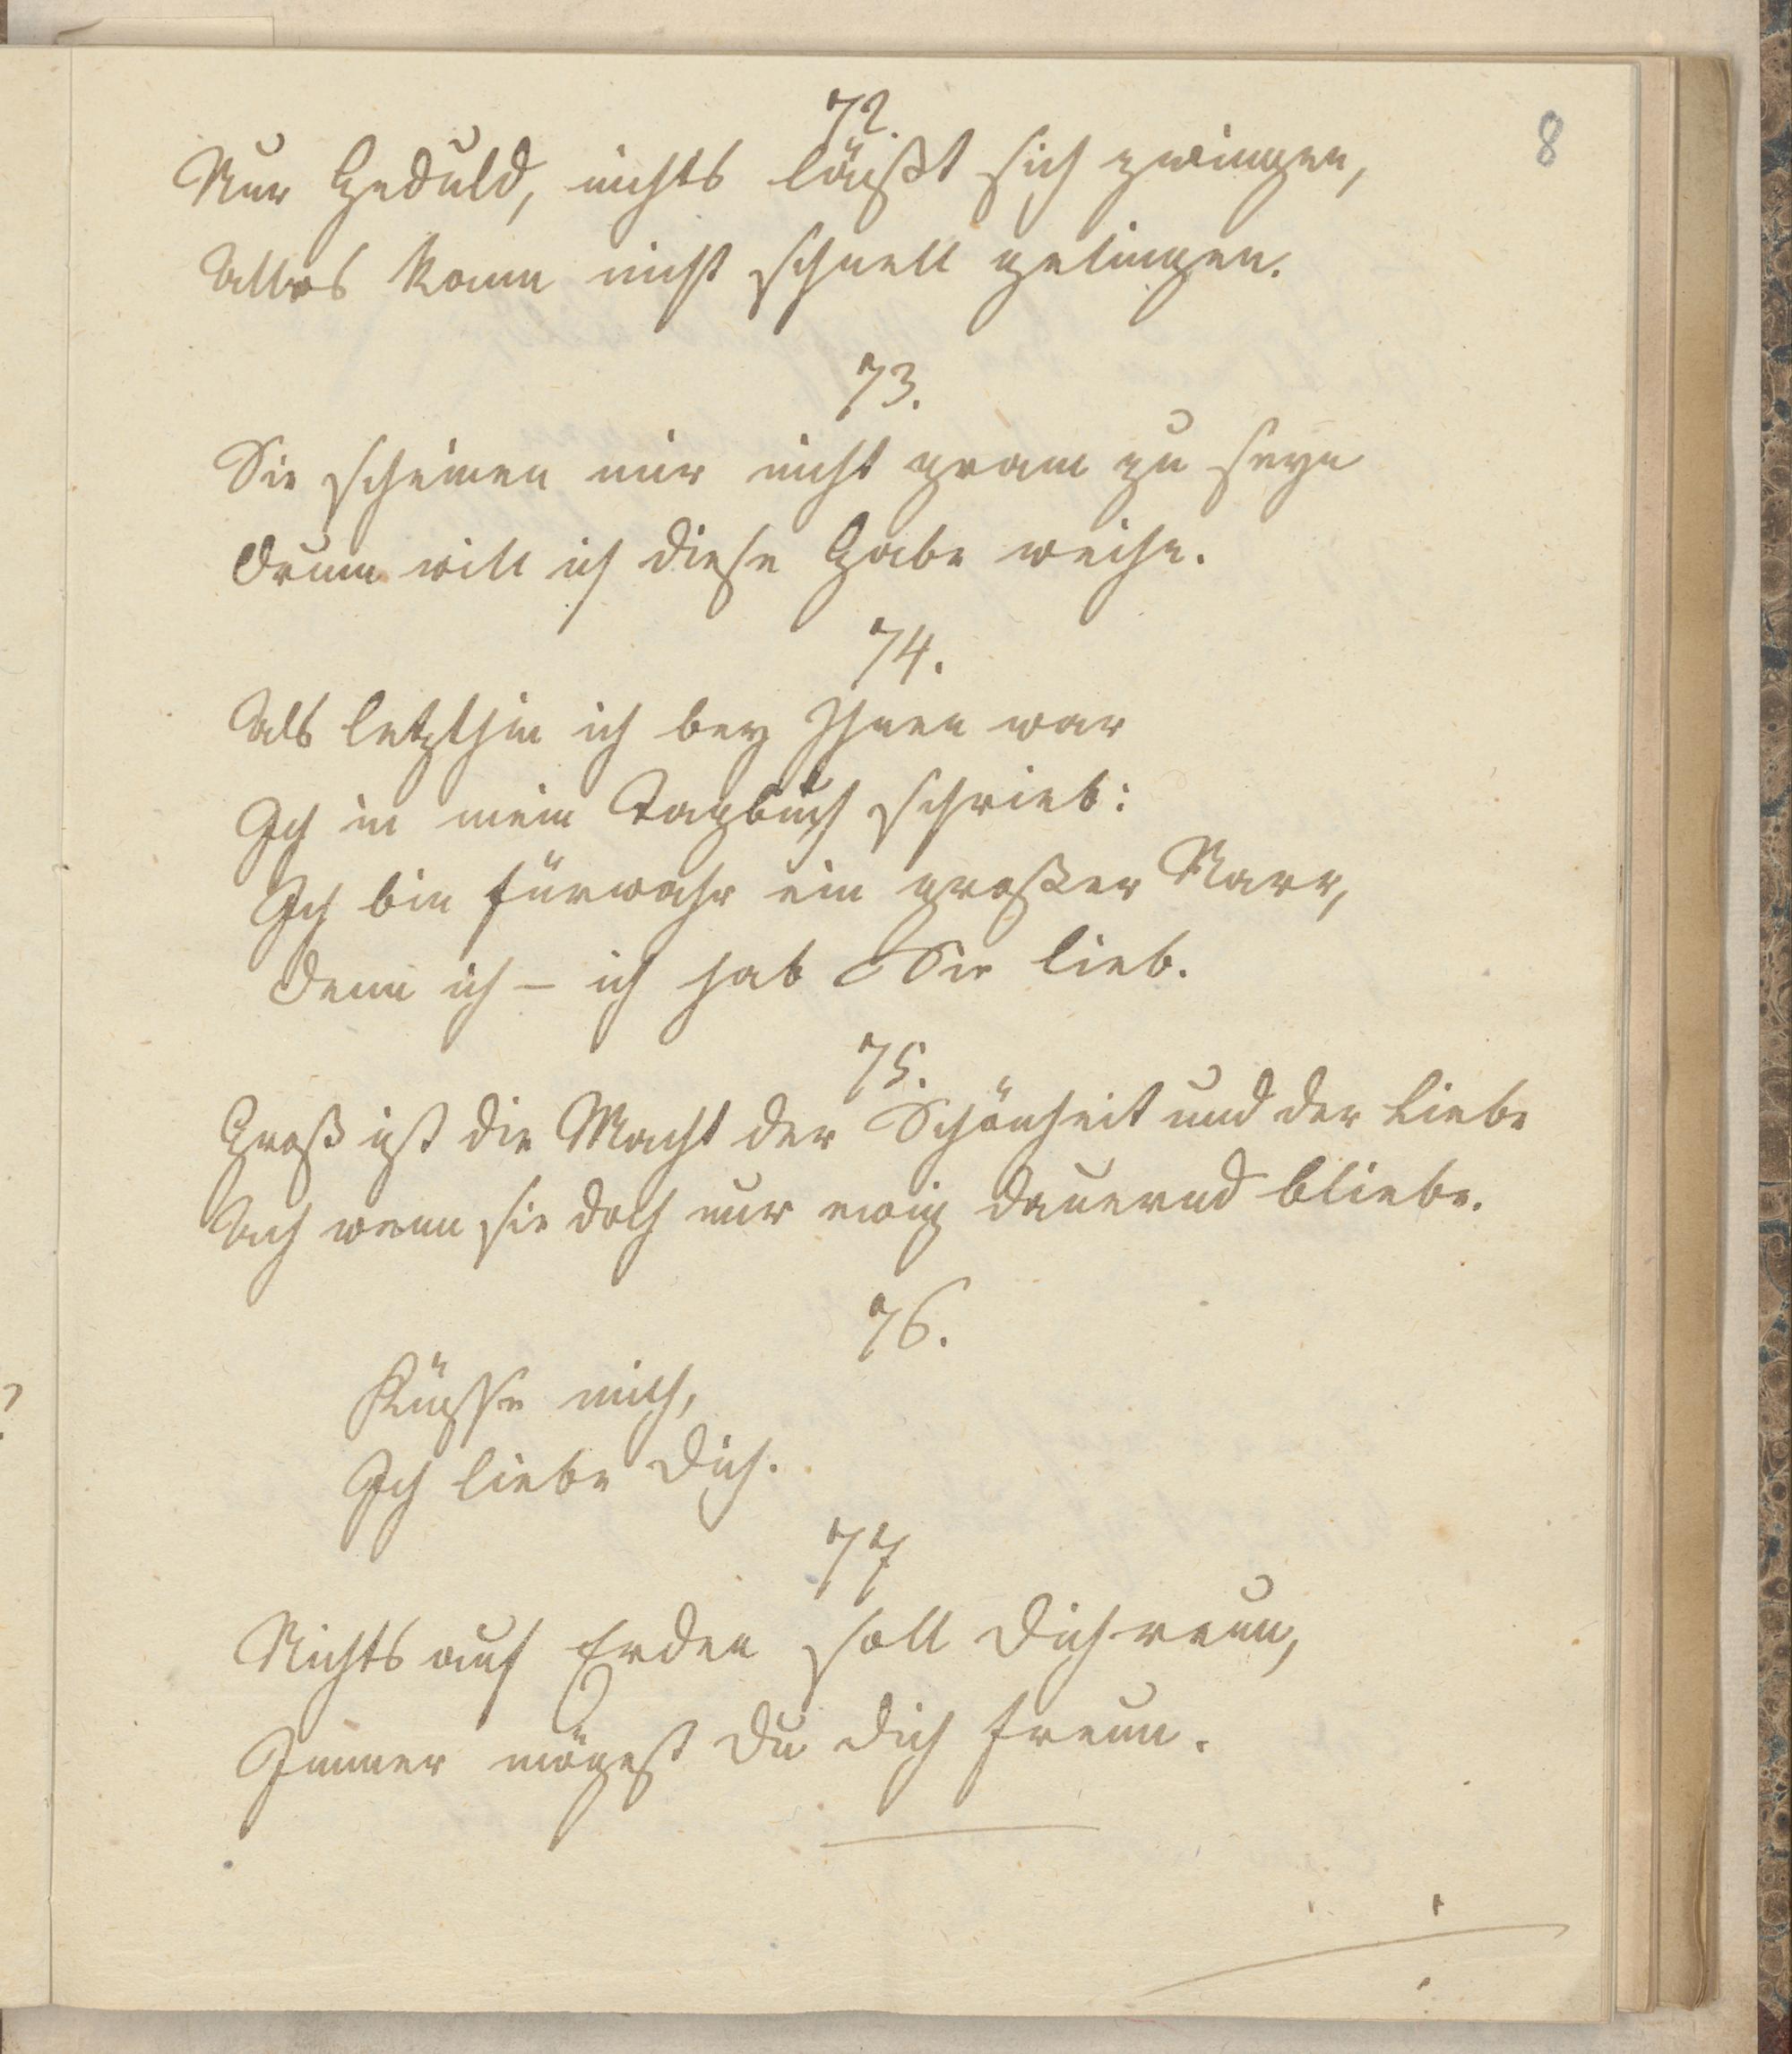 8
72.
Nur Geduld, nichts läußt sich zwingen,
Alles kann nicht schnell gelingen.
73.
Sie scheinen mir nicht gram zu seyn
Drum will ich diese Gabe weihn.
74.
Als letzthin ich bey Ihnen war
Ich in mein Tagbuch schrieb:
Ich bin fürwahr ein großer Narr,
Denn ich – ich hab Sie lieb.
75.
Groß ist die Macht der Schönheit und der Liebe
Ach wenn sie doch nur ewig dauernd bliebe.
76.
Küsse mich,
Ich liebe Dich.
77
Nichts auf Erden soll Dich reun,
Immer mögest Du Dich freun.